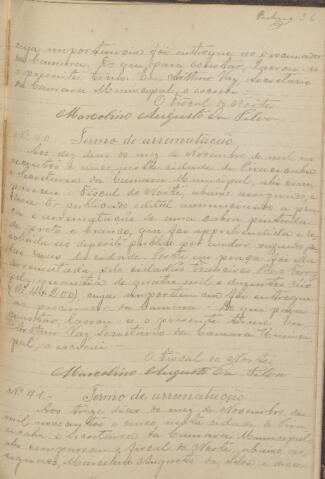 cuja importancia foi entregue ao procurador
da Camara. Do que para constar, lavrou-se
o presente termo. Eu, Vaz, Secretario
da Camara Municipal, o escrevi.
O Fiscal do Norte
Marcolino Augusto da Silva
Nº 40 Termo de arrematação
Aos dez dias do mez de Novembro de mil no
vecentos e nesta cidade de Piracicaba
e Secretaria da Camara Municipal, ahi com-
pareceu o Fiscal do Norte, abaixo assignado, e
edital annunciando a pra-
ça e arrematação de uma cabra pintada
de preto e branco, que foi apprehendida e re-
colhida ao deposito publico por andar vagando pe-
las ruas da cidade. Posta em praça foi ella
arrematada pelo cidadão Francisco
pela quantia de quatro mil e duzentos réis
(Rs. 4$200), cuja importancia foi entregue
ao procurador da Camara. Do que para
constar, lavrou-se o presente termo. Eu,
Vaz, Secretario da Camara Munici-
pal, o escrevi.
O Fiscal do Norte
Marcolino Augusto da Silva
Nº 41 Termo de arrematação
Aos treze dias do mez de Novembro de
mil novecentos e nesta cidade de Pira-
cicaba e Secretaria da Camara Municipal,
ahi compareceu o Fiscal do Norte, abaixo as-
signado, Marcolino Augusto da Silva, e disse